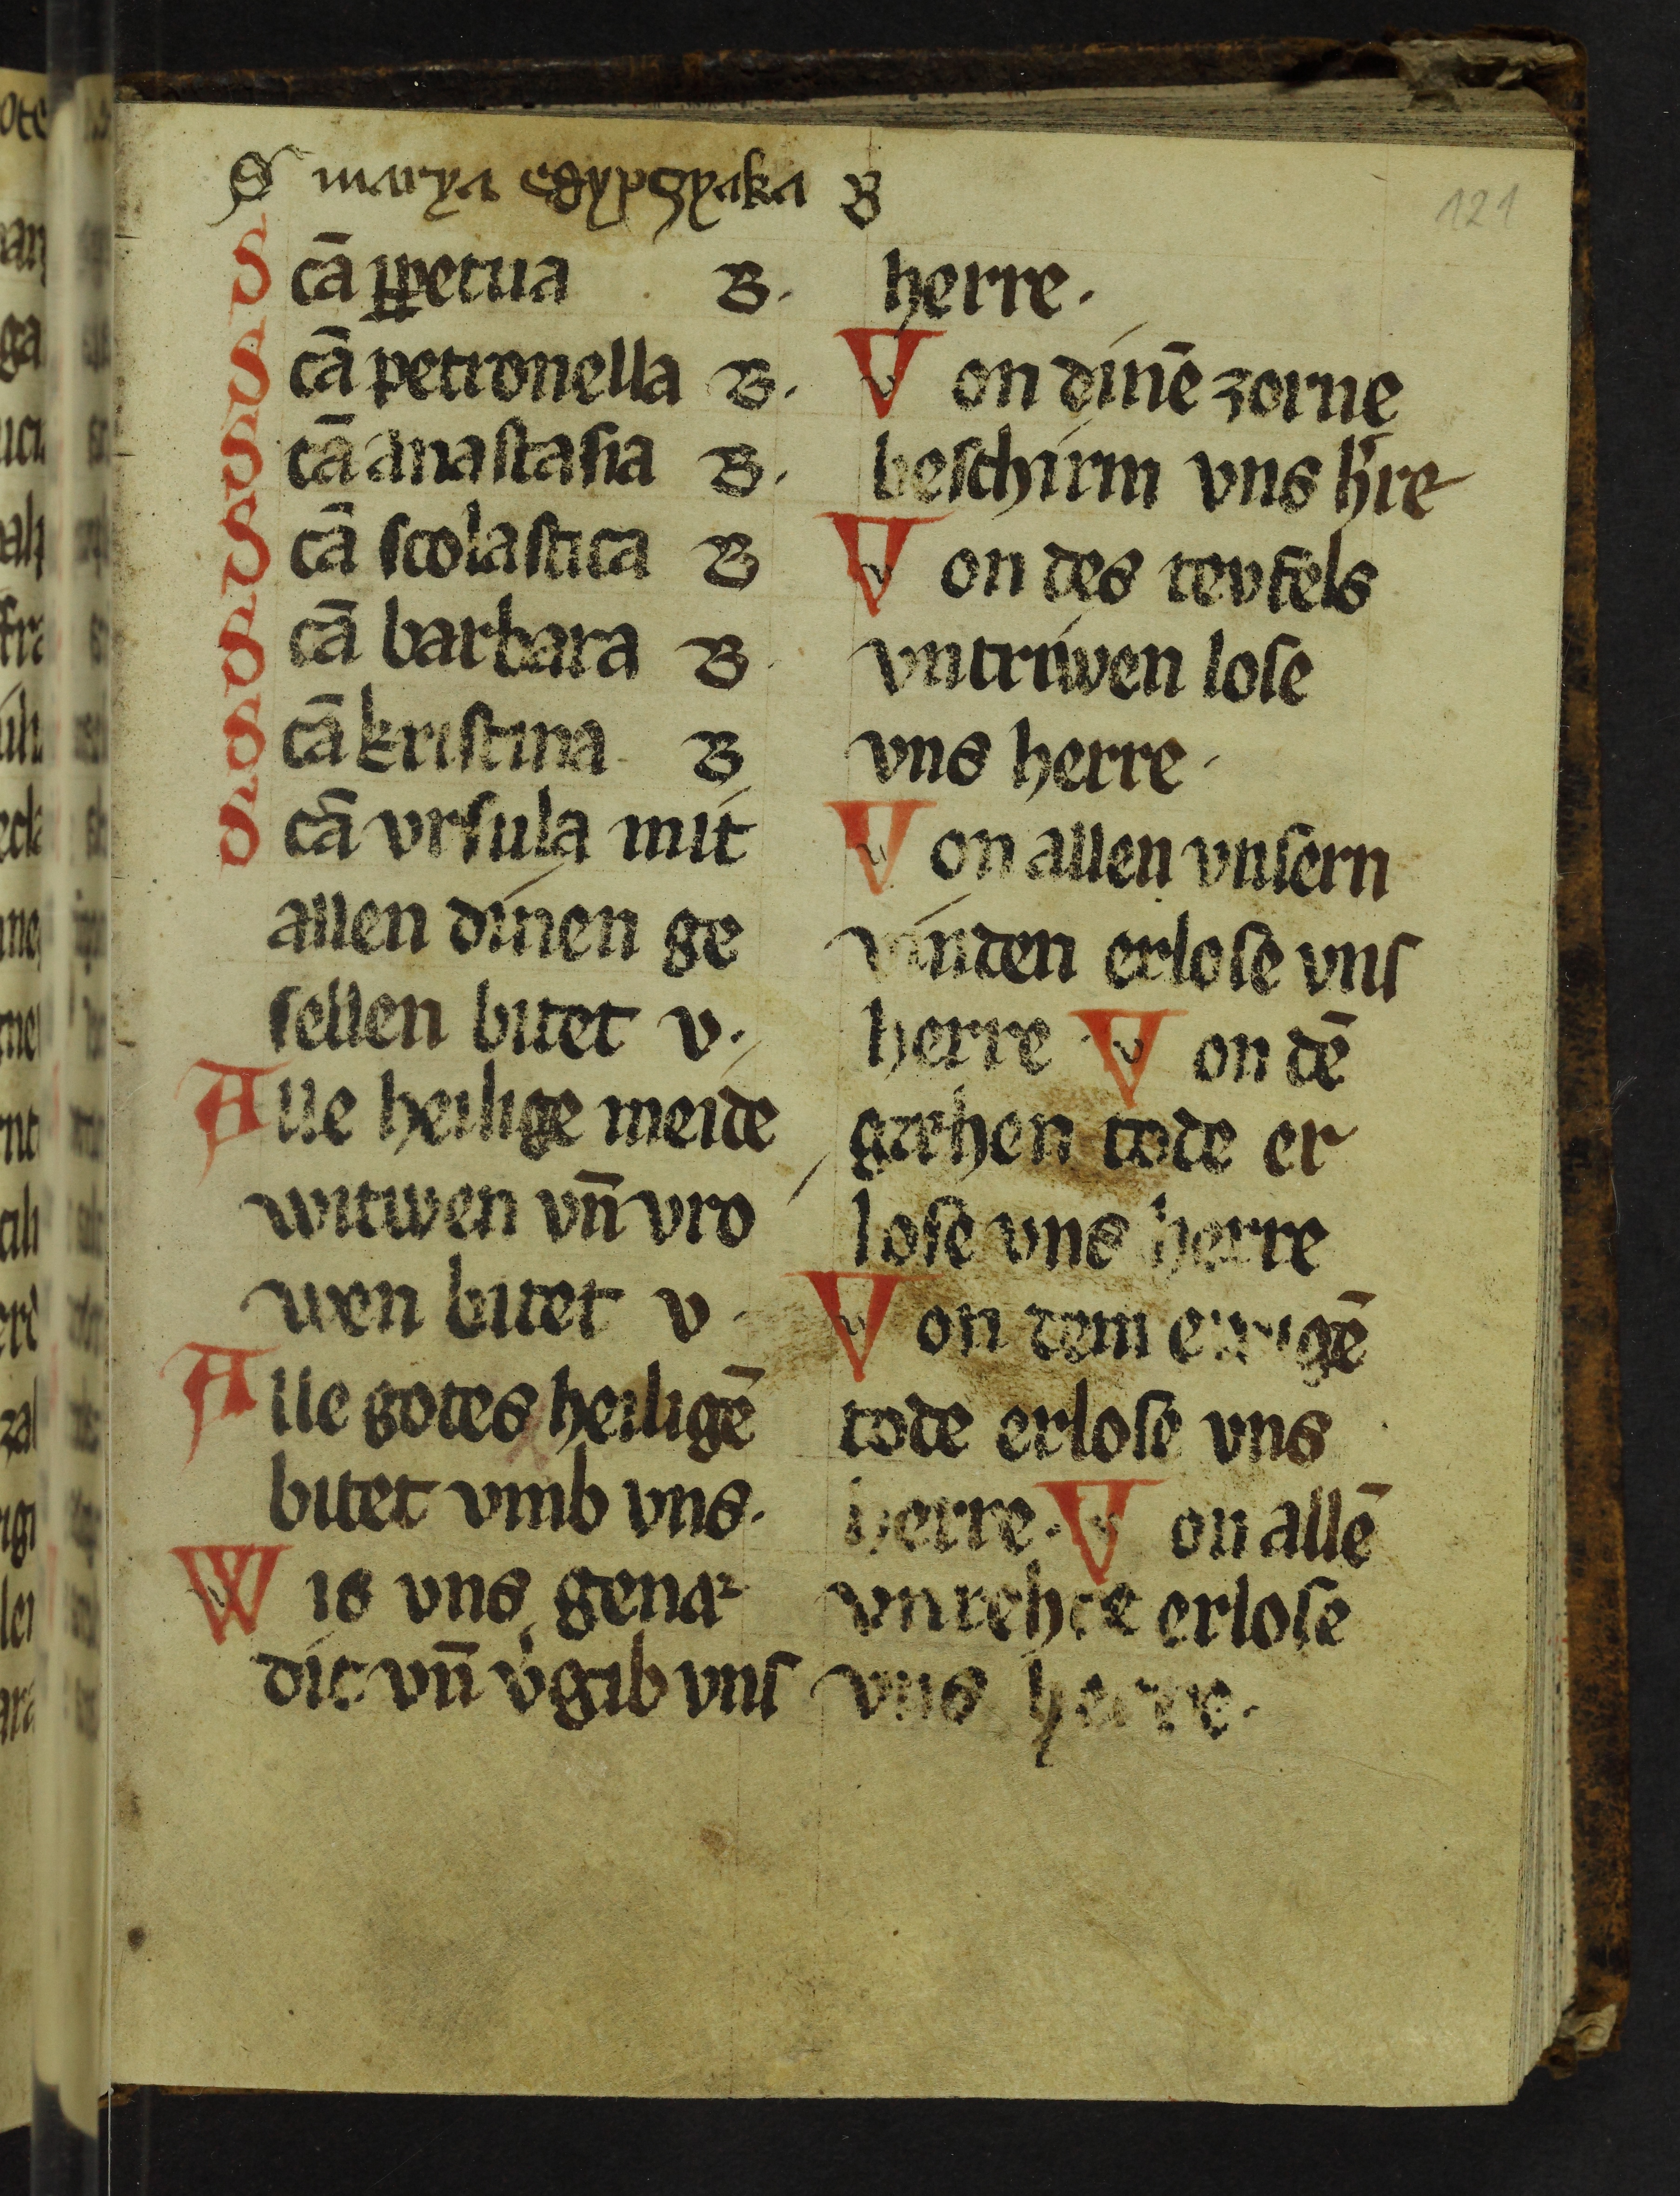 S marya egypczyaka B
121
Scā ꝑpetua B.
Scā petronella B.
Scā anaſtaſia B.
Scā ſcolaſtica B
Scā barbara B.
Scā kriſtina B
Scā vrſula mit
allen dinen ge
ſellen bitet v.
Alle heilige meide
witwen vn̄ vro
wen bitet v.
Alle gotes heiligē
bitet vmb vns.
Wis vns gena
dic vn̄ v̓gib vnſ
herre.
Von dinē zorne
beſchirm vns h̓re
Von des tevfels
vntriwen loſe
vns herre.
Von allen vnſern
vinden erloſe vnſ
herre Von dē
gæhen tode er
loſe vns herre
Von dem ewigē
tode erloſe vns
herre. Von allē
vnrehte erloſe
vns herre.